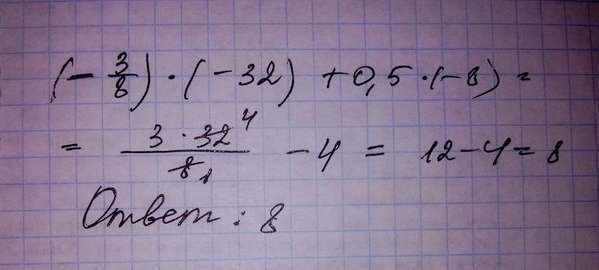 (- 3/8) · (-32) + 0,5 · (-8) =
= 3 · 32 4 / 8 1 - 4 = 12 - 4 = 8
Ответ: 8